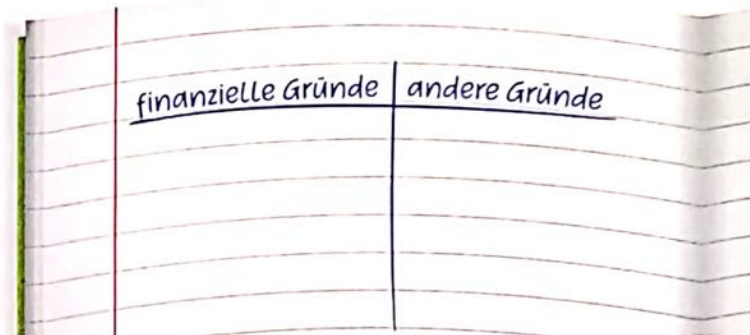 finanzielle Gründe andere Gründe